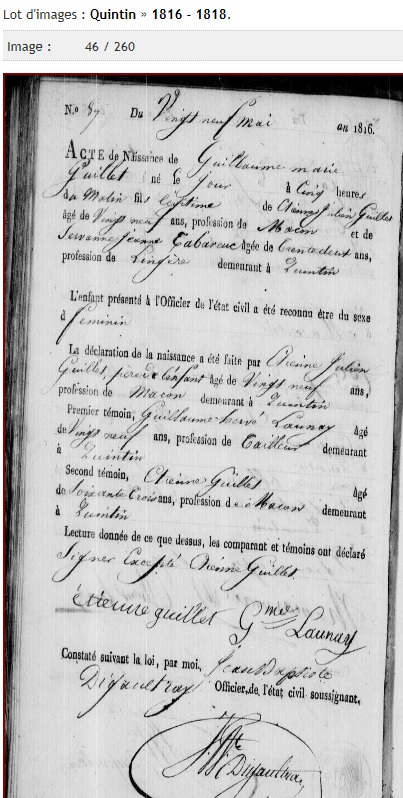 Lot d'images : Quintin » 1816 - 1818.
Image : 46 / 260
N.o 87 Du Vingt neuf mai an 1816.
ACTE de Naissance de Guillaume marie
Guillet né le jour à Cinq heures
du Matin fils légitime de Etienne Julien Guillet
âgé de Vingt neuf ans, profession de Macon et de
Servanne Jeanne Cabareuc âgée de trente deux ans,
profession de Lingère demeurant à Quintin
L'enfant présenté à l'Officier de l'état civil a été reconnu être du sexe
d feminin
La déclaration de la naissance a été faite par Etienne Julien
Guillet, père de l'enfant âgé de Vingt neuf ans,
profession de Macon demeurant à Quintin
Premier témoin, Guillaume hervé Launay âgé
de Vingt neuf ans, profession de Tailleur demeurant
à Quintin
Second témoin, Etienne Guillet âgé
de Soixante trois ans, profession de Macon demeurant
à Quintin
Lecture donnée de ce que dessus, les comparant et témoins ont déclaré
Signer Excepté Etienne Guillet.
étienne guillet Gmee Launay
Constaté suivant la loi, par moi, Jean Baptiste
Digaultray Officier de l'état civil soussigné,
Digaultray